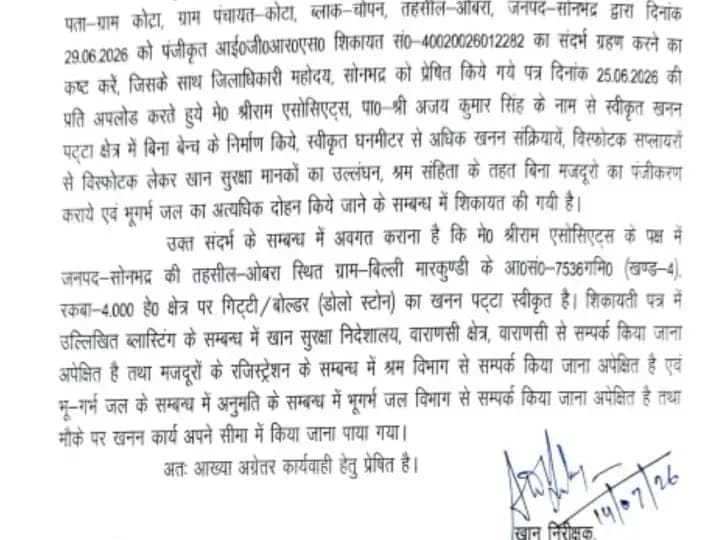 पता-ग्राम कोटा, ग्राम पंचायत-कोटा, ब्लाक-चोपन, तहसील-ओबरा, जनपद-सोनभद्र द्वारा दिनांक
29.06.2026 को पंजीकृत आई०जी०आर०एस० शिकायत सं०-40020026012282 का संदर्भ ग्रहण करने का
कष्ट करें, जिसके साथ जिलाधिकारी महोदय, सोनभद्र को प्रेषित किये गये पत्र दिनांक 25.06.2026 की
प्रति अपलोड करते हुये मे० श्रीराम एसोसिएट्स, पा०-श्री अजय कुमार सिंह के नाम से स्वीकृत खनन
पट्टा क्षेत्र में बिना बेन्च के निर्माण किये, स्वीकृत घनमीटर से अधिक खनन संक्रियायें, विस्फोटक सप्लायरों
से विस्फोटक लेकर खान सुरक्षा मानकों का उल्लंघन, श्रम संहिता के तहत बिना मजदूरो का पंजीकरण
कराये एवं भूगर्भ जल का अत्यधिक दोहन किये जाने के सम्बन्ध में शिकायत की गयी है।
उक्त संदर्भ के सम्बन्ध में अवगत कराना है कि मे० श्रीराम एसोसिएट्स के पक्ष में
जनपद-सोनभद्र की तहसील-ओबरा स्थित ग्राम-बिल्ली मारकुण्डी के आ०सं०-7536गमि० (खण्ड-4),
रकबा-4.000 हे० क्षेत्र पर गिट्टी/बोल्डर (डोलो स्टोन) का खनन पट्टा स्वीकृत है। शिकायती पत्र में
उल्लिखित ब्लास्टिंग के सम्बन्ध में खान सुरक्षा निदेशालय, वाराणसी क्षेत्र, वाराणसी से सम्पर्क किया जाना
अपेक्षित है तथा मजदूरों के रजिस्ट्रेशन के सम्बन्ध में श्रम विभाग से सम्पर्क किया जाना अपेक्षित है एवं
भू-गर्भ जल के सम्बन्ध में अनुमति के सम्बन्ध में भूगर्भ जल विभाग से सम्पर्क किया जाना अपेक्षित है तथा
मौके पर खनन कार्य अपने सीमा में किया जाना पाया गया।
अतः आख्या अग्रेतर कार्यवाही हेतु प्रेषित है।
14/07/26
खान निरीक्षक,